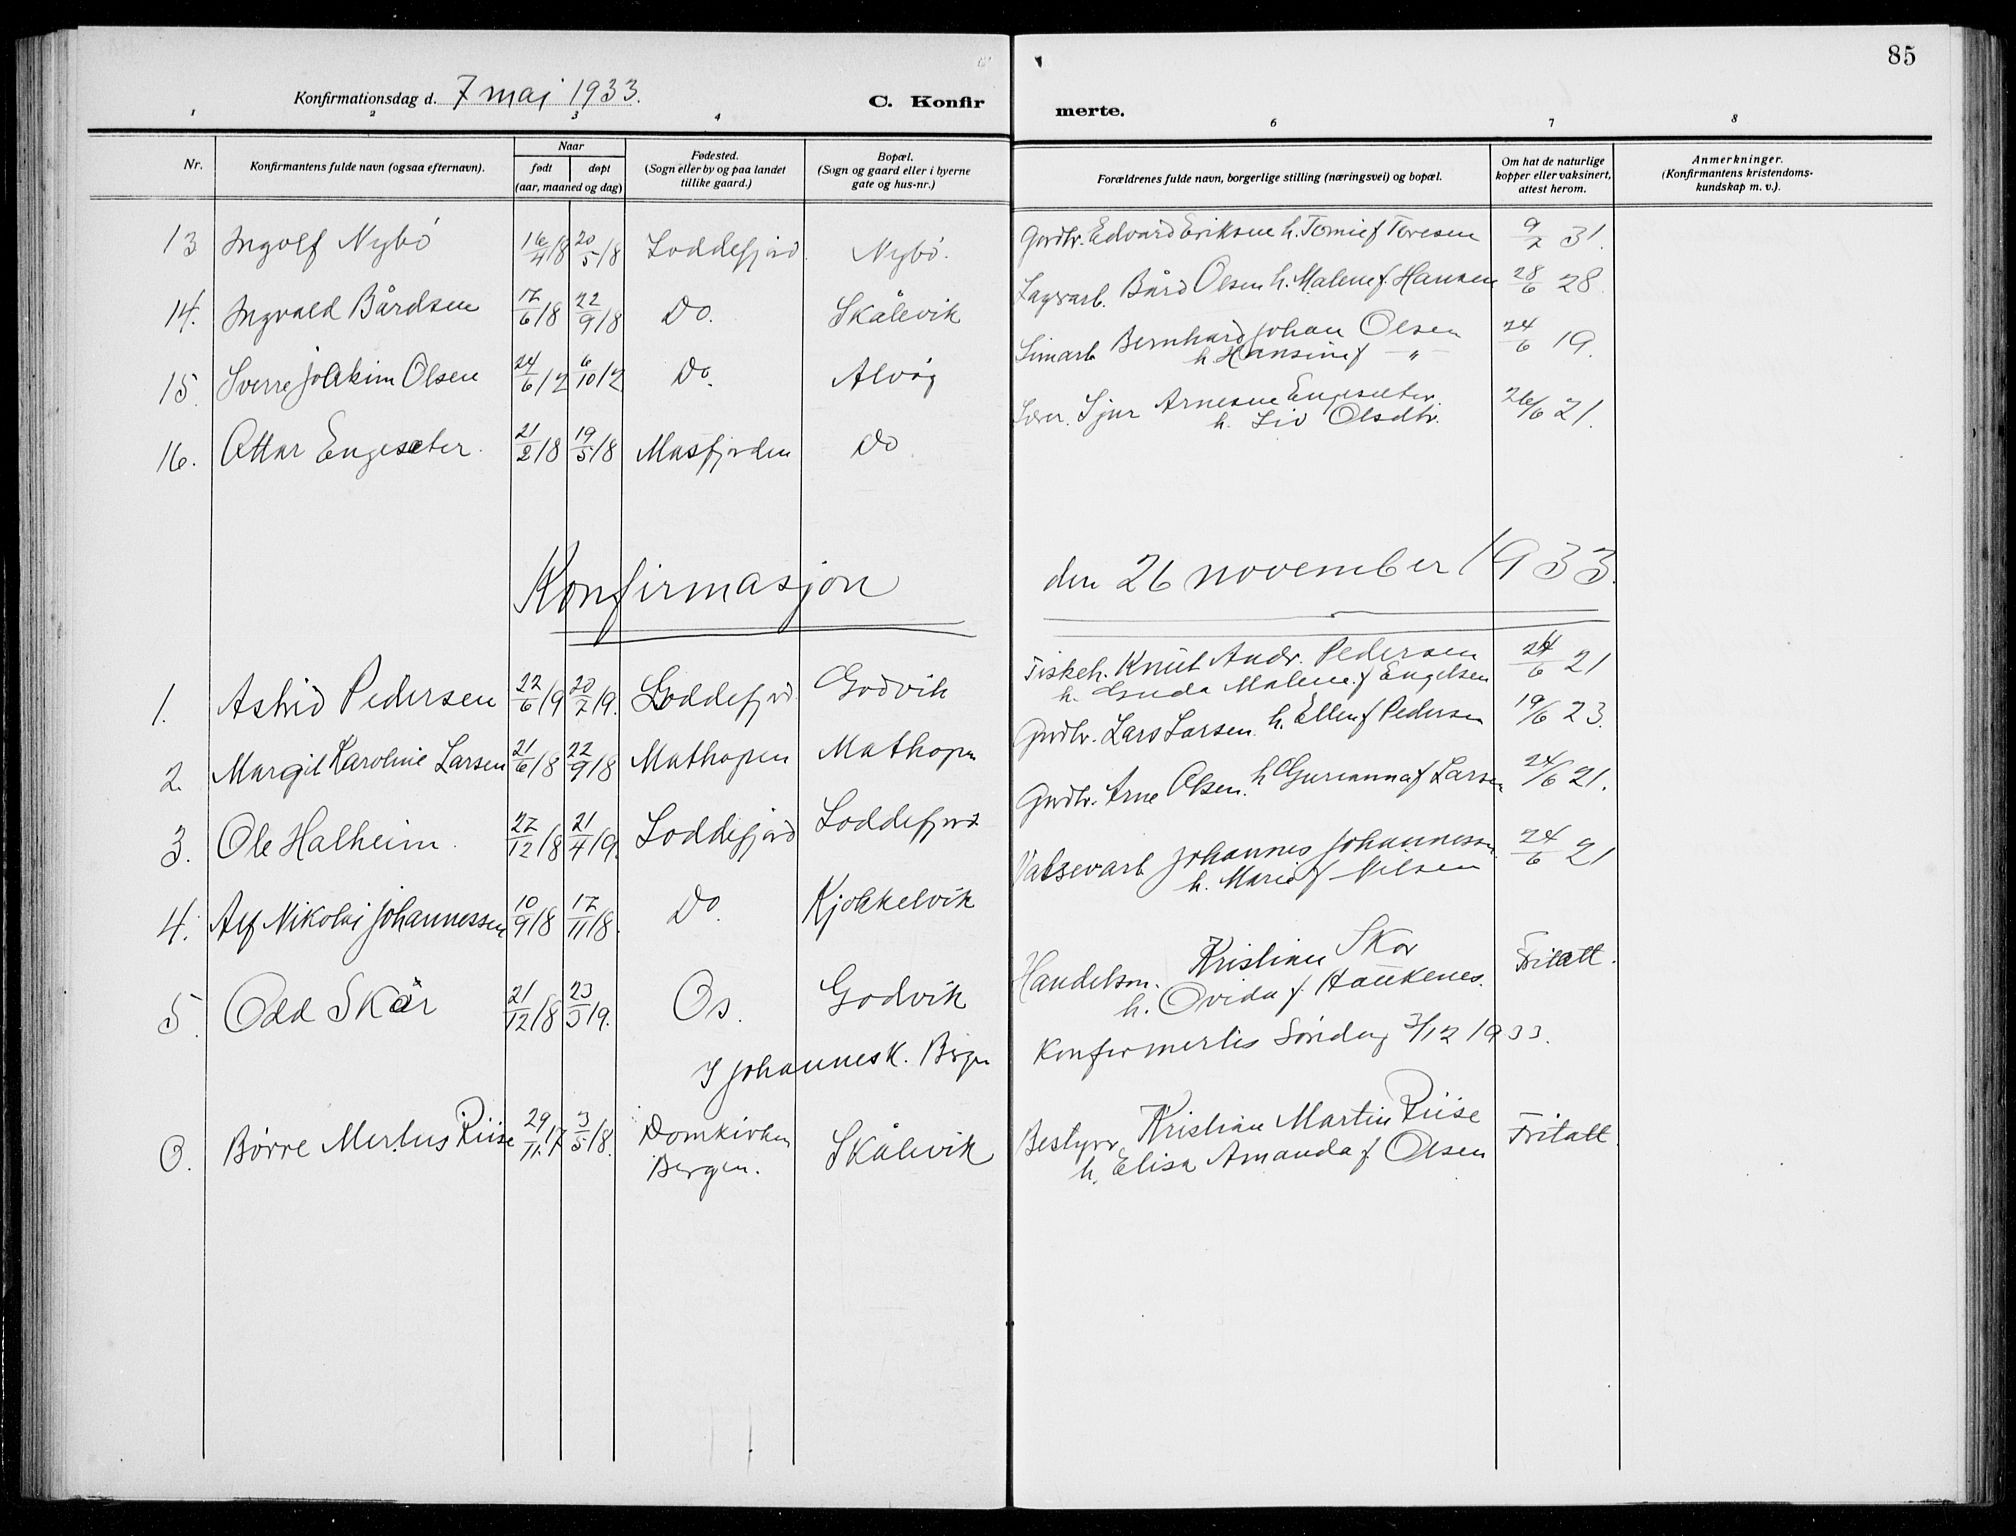 85
Konfirmationsdag d. 7 mai 1933.
C. Konfir
merte.
1 2 3 4 6 7 8
Nr.
Konfirmantens fulde navn (ogsaa efternavn).
Naar
født døpt
(aar, maaned og dag)
Fødested.
(Sogn eller by og paa landet
tillike gaard.)
Bopæl.
(Sogn og gaard eller i byerne
gate og hus-nr.)
Forældrenes fulde navn, borgerlige stilling (næringsvei) og bopæl.
Om hat de naturlige
kopper eller vaksinert,
attest herom.
Anmerkninger.
(Konfirmantens kristendoms-
kundskap m. v.).
13 Ingolf Nybö 16/4 18 20/5 18 Loddefjord Nybö. Gardbr. Edvard Eriksen h. f Toresen 9/2 31.
14. Ingvald Bårdsen 17/6 18 22/9 18 Do. Skålevik Bård Olsen h. Malene f. Hansen 28/6 28.
15. Sverre Joakim Olsen 24/6 17 6/10 17 Do. Alvög Bernhard Johan Olsen 24/6 19.
h Hansine f — " —
16. Ottar Engesæter. 21/2 18 19/5 18 Masfjorden Do Sjur Arnesen Engesæter. 26/6 21.
h. Liv Olsdtr.
Konfirmasjon den 26 november 1933.
1. Astrid Pedersen 22/6 19 20/7 19. Loddefjord Godvik Fiskeh. Knut Andr. Pedersen 24/6 21
h. Guda Malene f Engelsen
2. Margit Karoline Larsen 21/6 18 22/9 18 Mathopen Mathopen Gardbr. Lars Larsen h. Ellen f Pedersen 19/6 23.
3. Ole Halheim. 27/12 18 21/4 19. Loddefjord Loddefjord Gardbr. Arne Olsen. h Gurianna f Larsen 24/6 21.
4. Alf Nikolai Johannessen 10/9 18 17/11 18. Do. Kjökkelvik Valsevarb Johannes Johannessen 24/6 21
h. Marie f Nilsen
5. Odd Skår 21/12 18 23/3 19. Os. Godvik Handelsm. Kristian Skor Fritatt.
h. Ovida f. Haukenes.
I Johannesk. Bergen Konfirmertes Söndag 3/12 1933.
6. Börre Riise 29/11. 17 3/5 18. Domkirken Skålevik Bestyrer Kristian Martin Riise Fritatt.
Bergen. h. Elisa Amanda f. Olsen